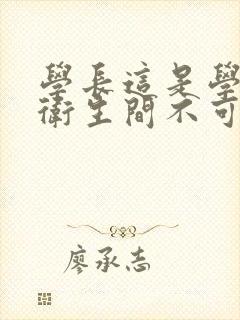 學長這是學
衛生間不可
廖承志